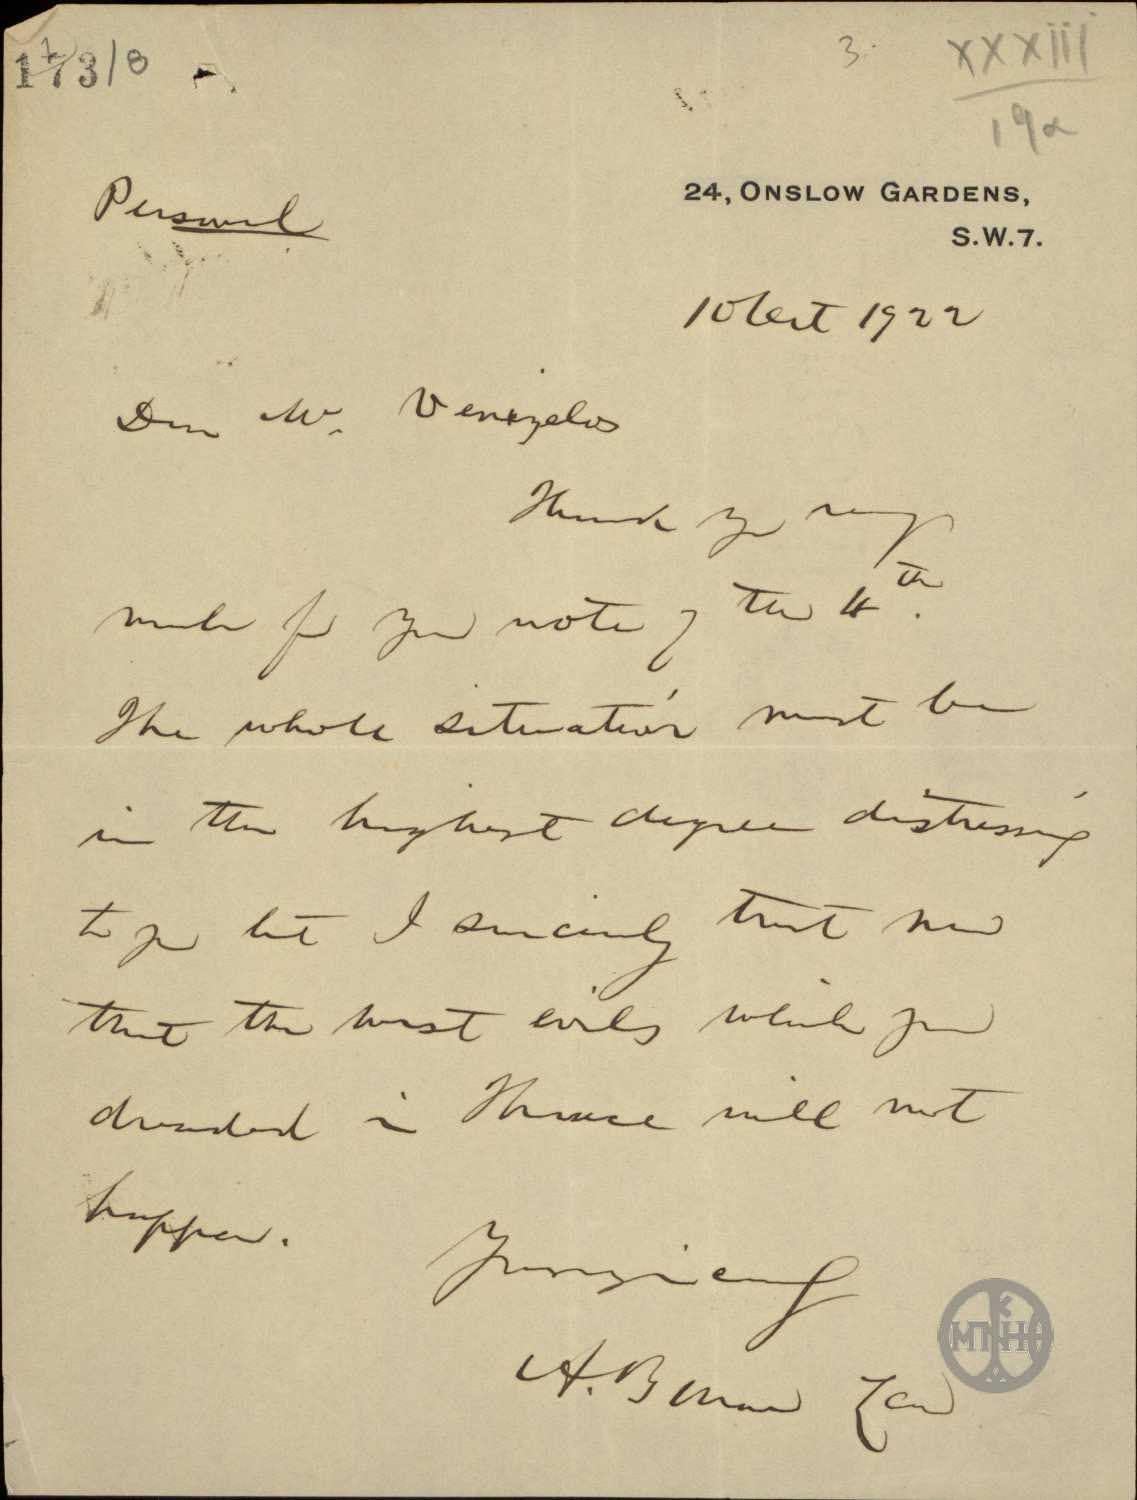 173/8
3.
XXXIII
19α
Personal
24, ONSLOW GARDENS,
S.W.7.
10 Oct 1922
Dear Mr. Venizelos
Thank you very
much for your note of the 4th.
The whole situation must be
in the highest degree distressing
to you but I sincerely trust now
that the worst evils which you
dreaded in Thrace will not
happen.
Yours sincerely
A. Bonar Law
ΜΠΝΗΚ